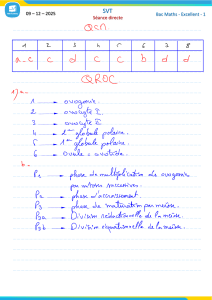 09 – 12 – 2025
SVT
Séance directe
Bac Maths - Excellent - 1
QCM
1 2 3 4 5 6 7 8
a-c c d c c b d d
QROC
1) a-
1 → ovogonie.
2 → ovocyte I.
3 → ovocyte II.
4 → globule polaire.
5 → 1er globule polaire.
6 → ovule = ovotide.
b-
P1 → phase de multiplication des ovogonies
par mitoses successives.
P2 → phase d'accroissement.
P3 → phase de maturation par meïose.
P3a → Division réductionnelle de la meïose.
P3b → Division équationnelle de la meïose.